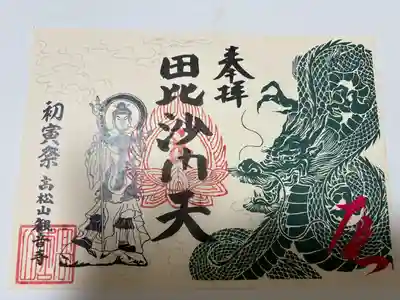 奉拝
毘沙門天
初寅祭
高松山観音寺